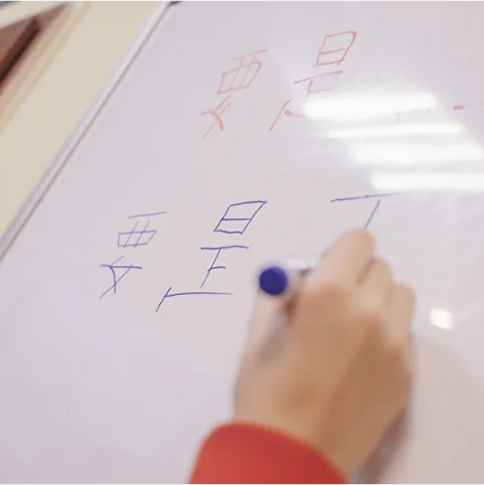 要是
要是